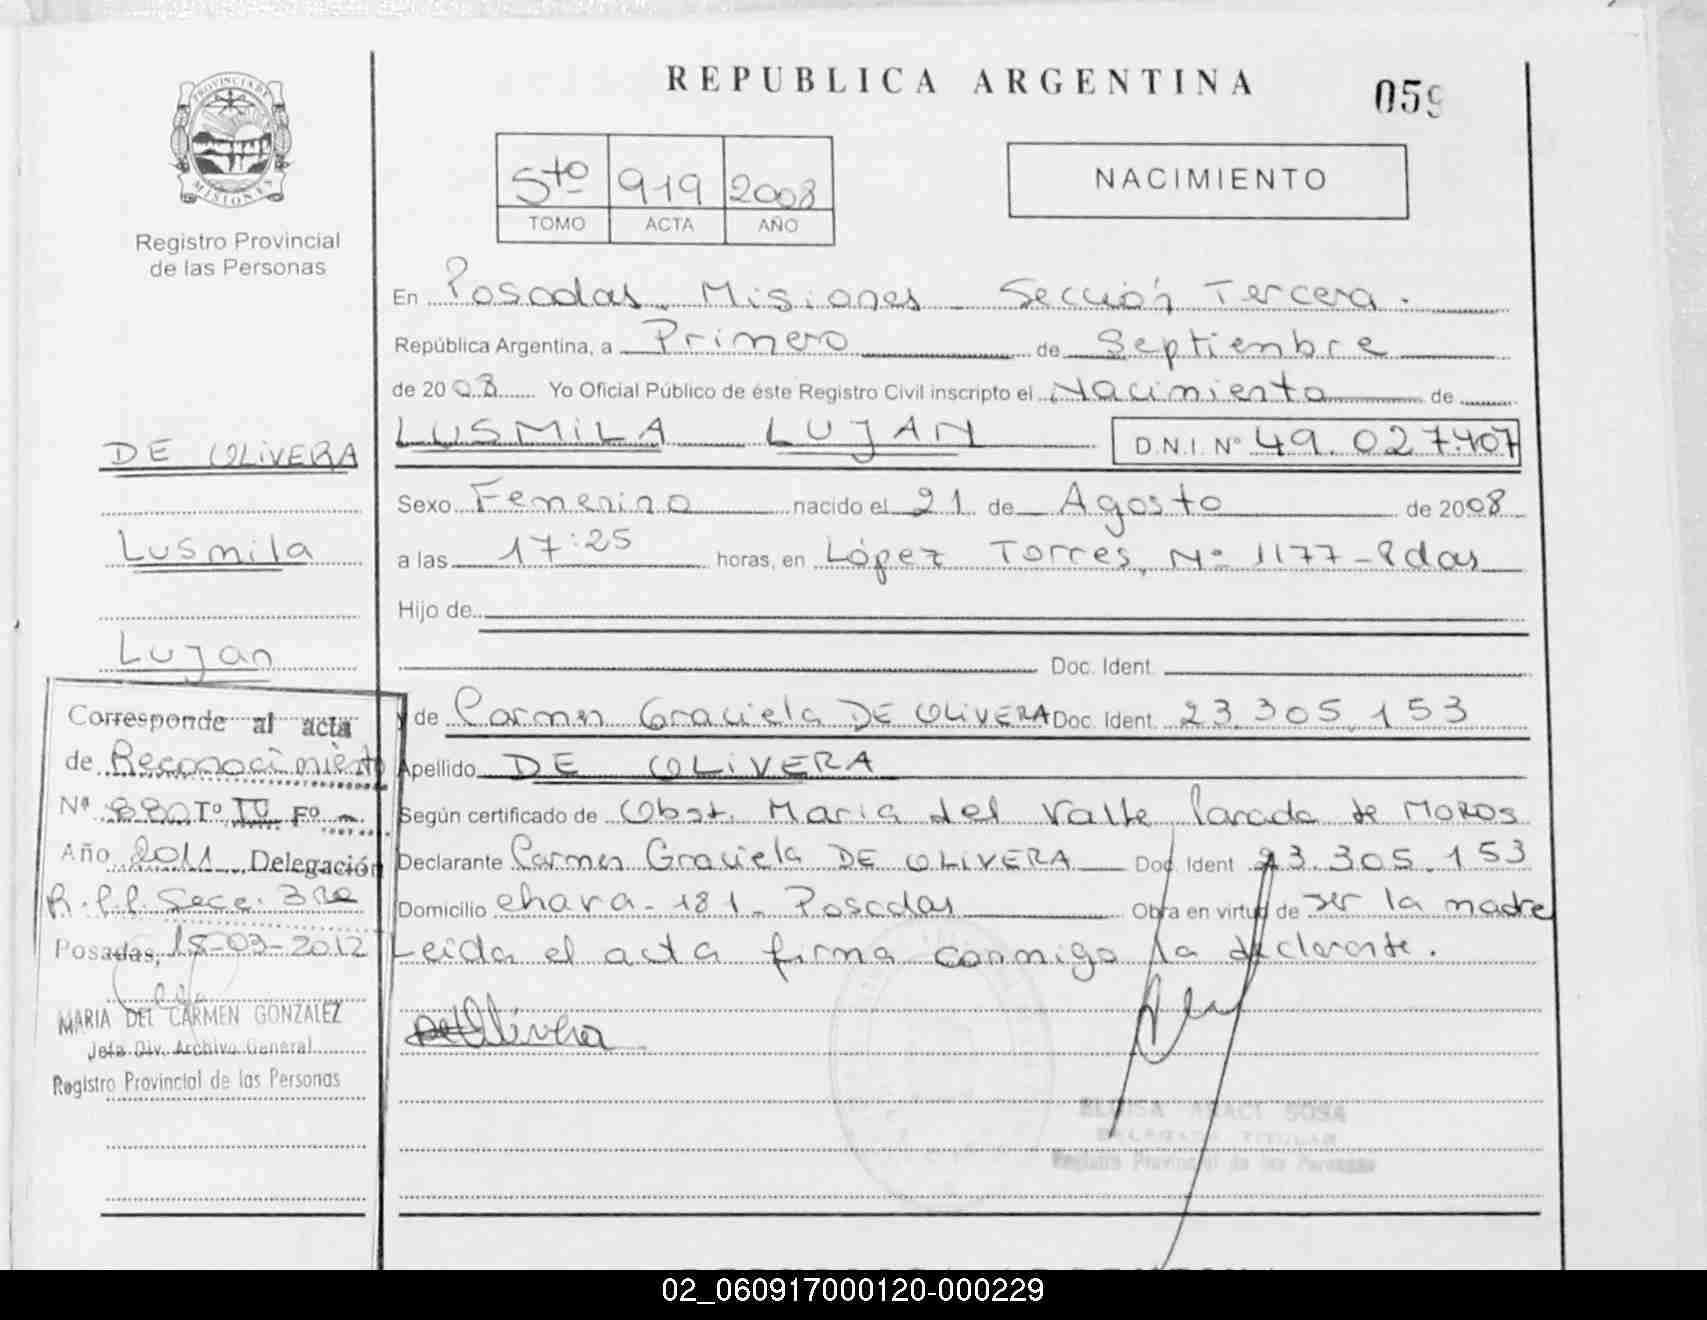 REPUBLICA ARGENTINA
059
PROVINCIA DE MISIONES
Registro Provincial
de las Personas
5to 919 2008
TOMO ACTA AÑO
NACIMIENTO
En Posadas Misiones Sección Tercera.
República Argentina, a Primero de Septienbre
de 2008 Yo Oficial Público de éste Registro Civil inscripto el Nacimiento de
LUSMILA LUJAN D.N.I. Nº 49.027.407
DE OLIVERA
Lusmila
Lujan
Sexo Femenino nacido el 21 de Agosto de 2008
a las 17:25 horas, en López Torres, Nº 1177-Pdas
Hijo de
Doc. Ident.
y de Carmen Graciela DE OLIVERA Doc. Ident. 23.305.153
Apellido DE OLIVERA
Según certificado de Obst. Maria del Valle Parada de MOROS
Declarante Carmen Graciela DE OLIVERA Doc. Ident 23.305.153
Domicilio chara-181-Posadas Obra en virtud de ser la madre
Leida el acta firma conmigo la declarante.
Corresponde al acta
de Reconocimiento
Nº 880 Tº IV Fº -
Año 2011 Delegación
R.P.P. Secc. 3ra
Posadas, 15-03-2012
MARIA DEL CARMEN GONZALEZ
Jefa Div. Archivo General
Registro Provincial de las Personas
deOlivera
ELOISA ARACI SOSA
DELEGADA TITULAR
Registro Provincial de las Personas
02_060917000120-000229